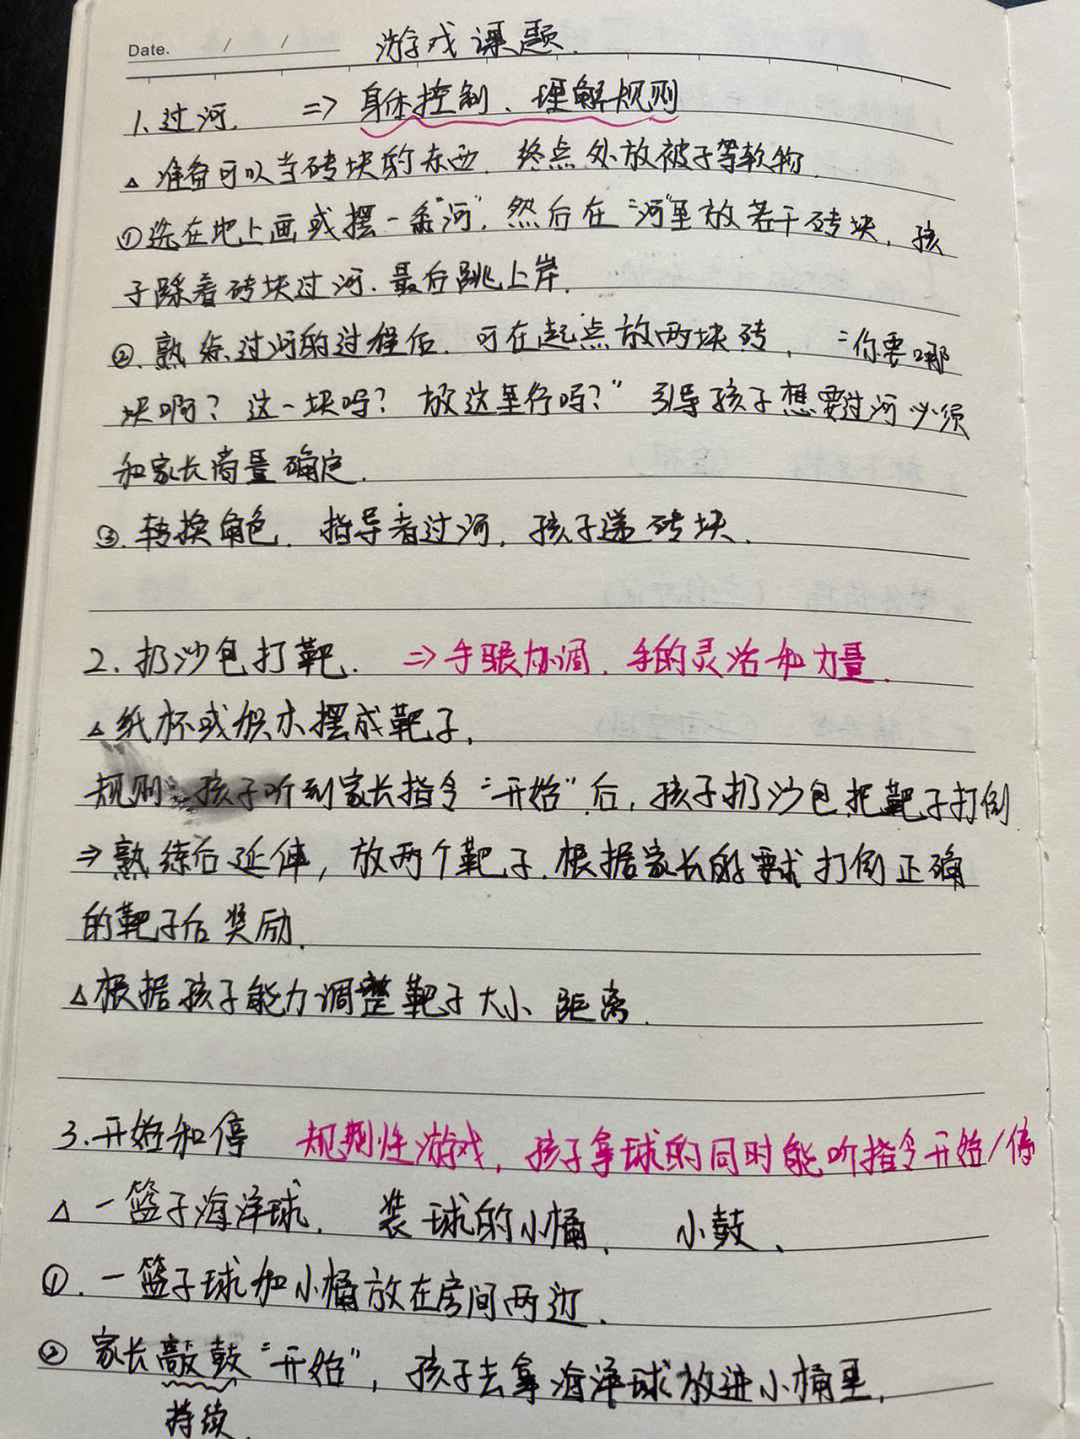 Date. / / 游戏课题.
1.过河. => 身体控制、理解规则
△ 准备可以当砖块的东西. 终点处放被子等软物.
①先在地上画或摆一条"河", 然后在"河"里放若干砖块, 孩
子踩着砖块过河. 最后跳上岸.
②.熟练过河的过程后. 可在起点放两块砖, "你要哪
块啊? 这一块吗? 放这里行吗?" 引导孩子想要过河必须
和家长商量确定.
③.转换角色. 指导者过河, 孩子递砖块.
2.扔沙包打靶. => 手眼协调. 手的灵活和力量.
△纸杯或积木摆成靶子.
规则: 孩子听到家长指令"开始"后, 孩子扔沙包把靶子打倒
=>熟练后延伸, 放两个靶子.根据家长的要求打倒正确
的靶子后奖励.
△根据孩子能力调整靶子大小 距离.
3.开始和停 规则性游戏, 孩子拿球的同时能听指令开始/停
△ 一篮子海洋球. 装球的小桶、 小鼓、
①. 一篮子球和小桶放在房间两边.
② 家长敲鼓"开始", 孩子去拿海洋球放进小桶里.
持续.